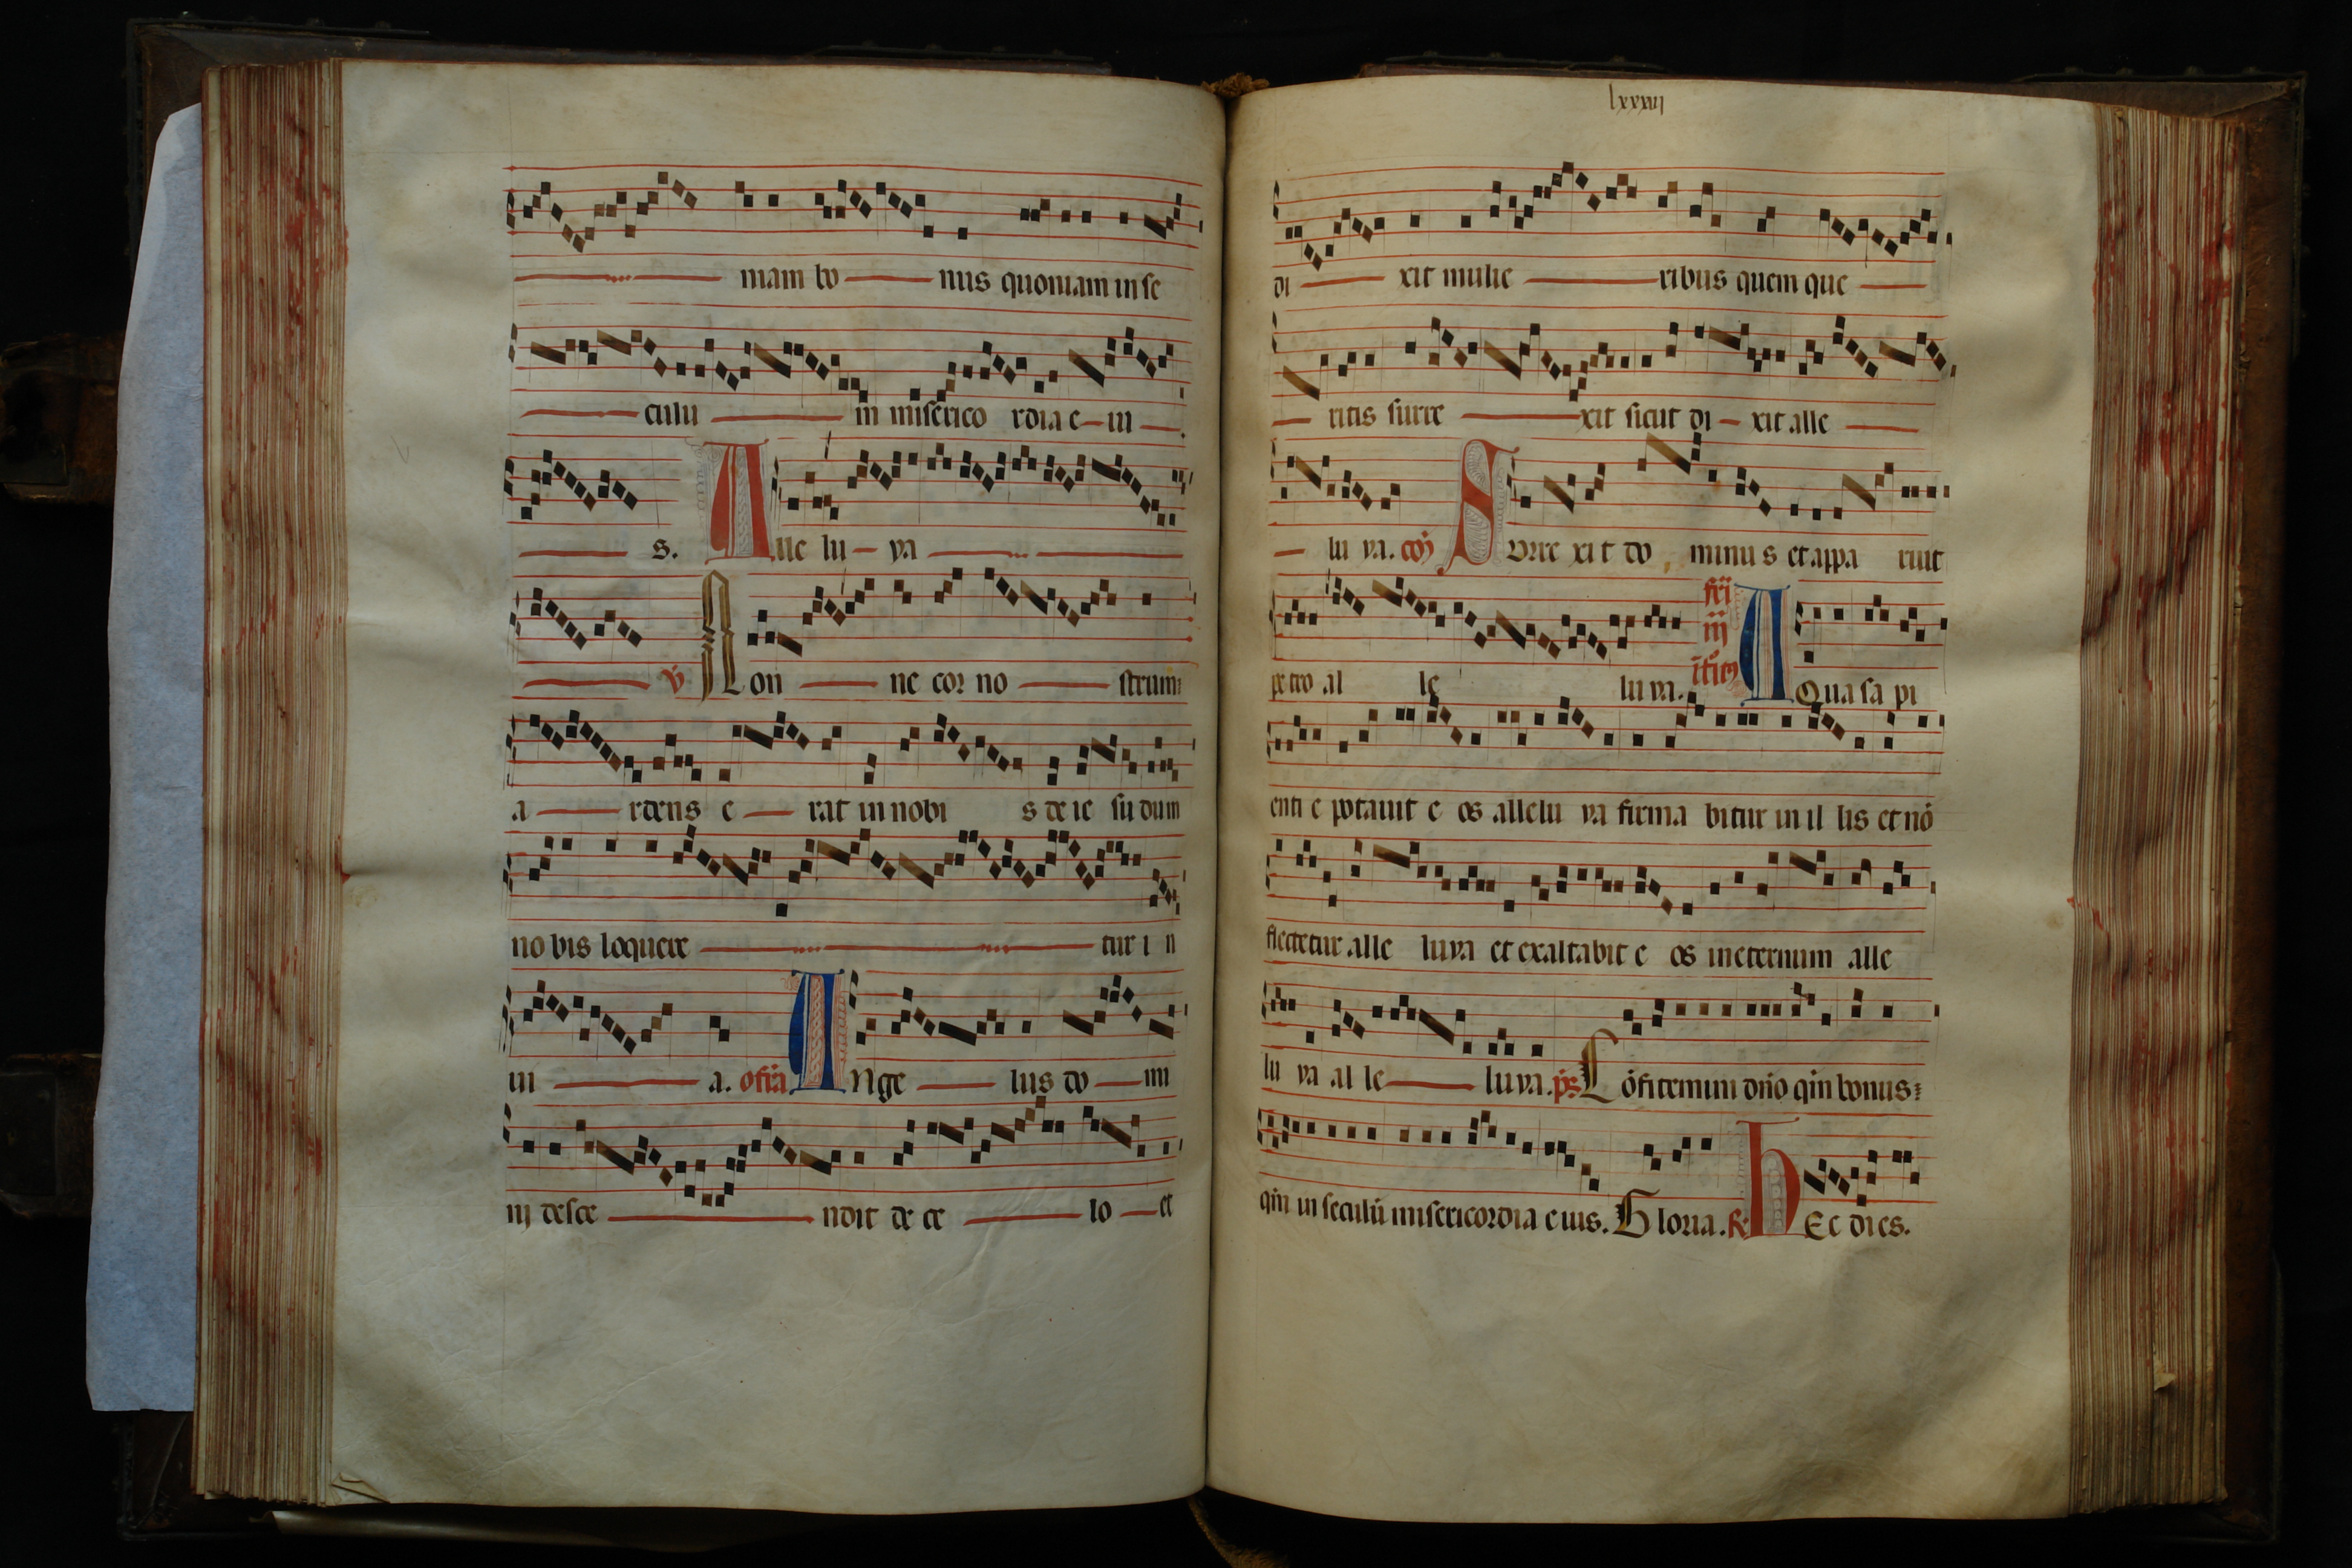 niam bo nus quoniam in se
culu m miserico rdia e iu
s. Alle lu ya
v Non ne cor no strum
a rdens e rat in nobi s de ie su dum
no bis loquere tur i n
ui a. ofia Ange lus do mi
nj desce ndit de ce lo et
lxxxvij
di xit mulie ribus quem que
ritis surre xit sicut di xit alle
lu ya. com Surre xi t do minu s et appa ruit
petro al le lu ya. fri iij itm Aqua sa pi
enti e potauit e os allelu ya firma bitur in il lis et nō
flectetur alle luya et exaltabit e os in eternum alle
lu ya al le luya. ps Cōfitemini dño qm̄ bonus
qm̄ in seculū misericordia e ius. Gloria. R Hec dies.